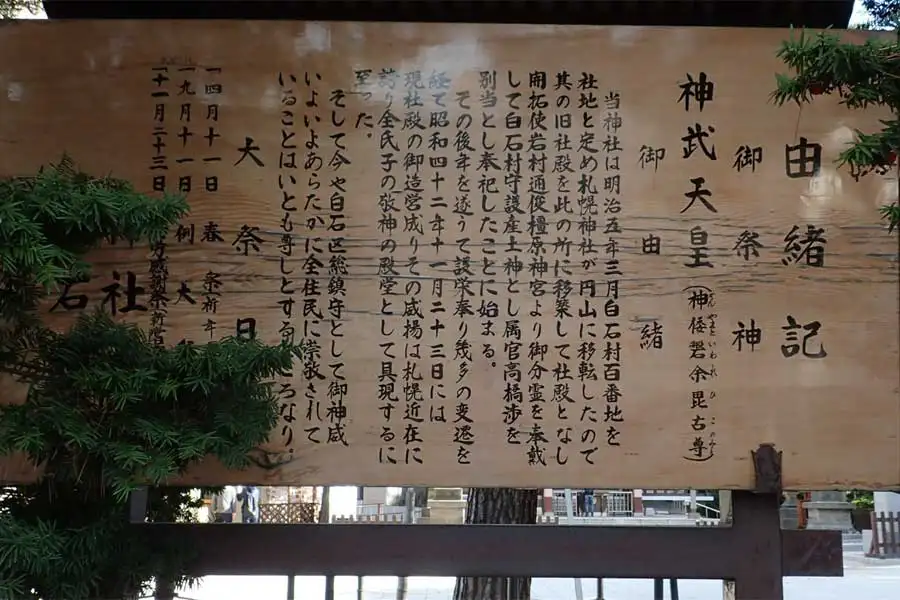 由緒記
御祭神
神武天皇(神倭磐余毘古尊)
かんやまといわれひこのみこと
御由緒
当神社は明治五年三月白石村百番地を
社地と定め札幌神社が円山に移転したので
其の旧社殿を此の所に移築して社殿となし
開拓使岩村通俊橿原神宮より御分霊を奉戴
して白石村守護産土神とし属官高橋渉を
別当とし奉祀したことに始まる。
その後年を遂うて護栄奉り幾多の変遷を
経て昭和四十二年十一月二十三日には
現社殿の御造営成りその威揚は札幌近在に
誇り全氏子の敬神の殿堂として具現するに
至った。
そして今や白石区総鎮守として御神威
いよいよあらたかに全住民に崇敬されて
いることはいとも尊しとするところなり。
大祭日
一四月十一日 春 祭
一九月十一日 例大
一十一月二十三日
石 神社